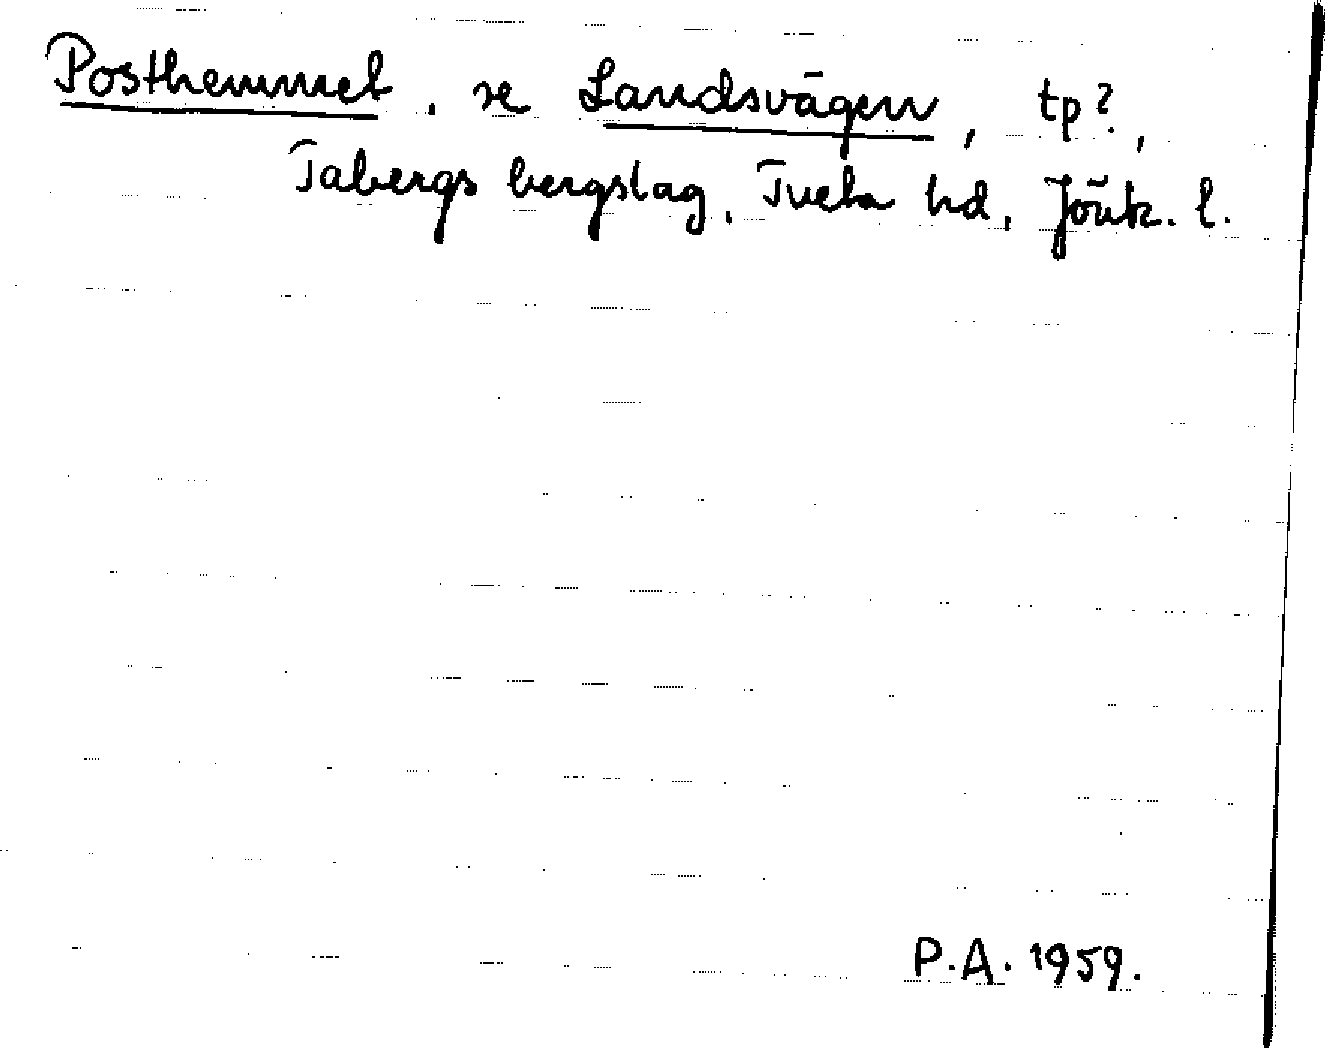 Posthemmet, se Landsvägen, tp?,
Tabergs bergslag, Tveta hd, Jönk. l.
P.A. 1959.